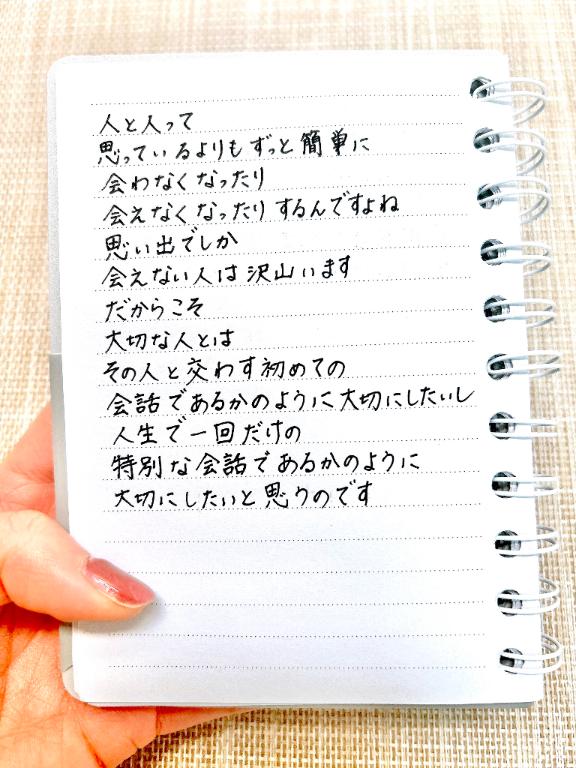 人と人って
思っているよりもずっと簡単に
会わなくなったり
会えなくなったりするんですよね
思い出でしか
会えない人は沢山います
だからこそ
大切な人とは
その人と交わす初めての
会話であるかのように大切にしたいし
人生で一回だけの
特別な会話であるかのように
大切にしたいと思うのです